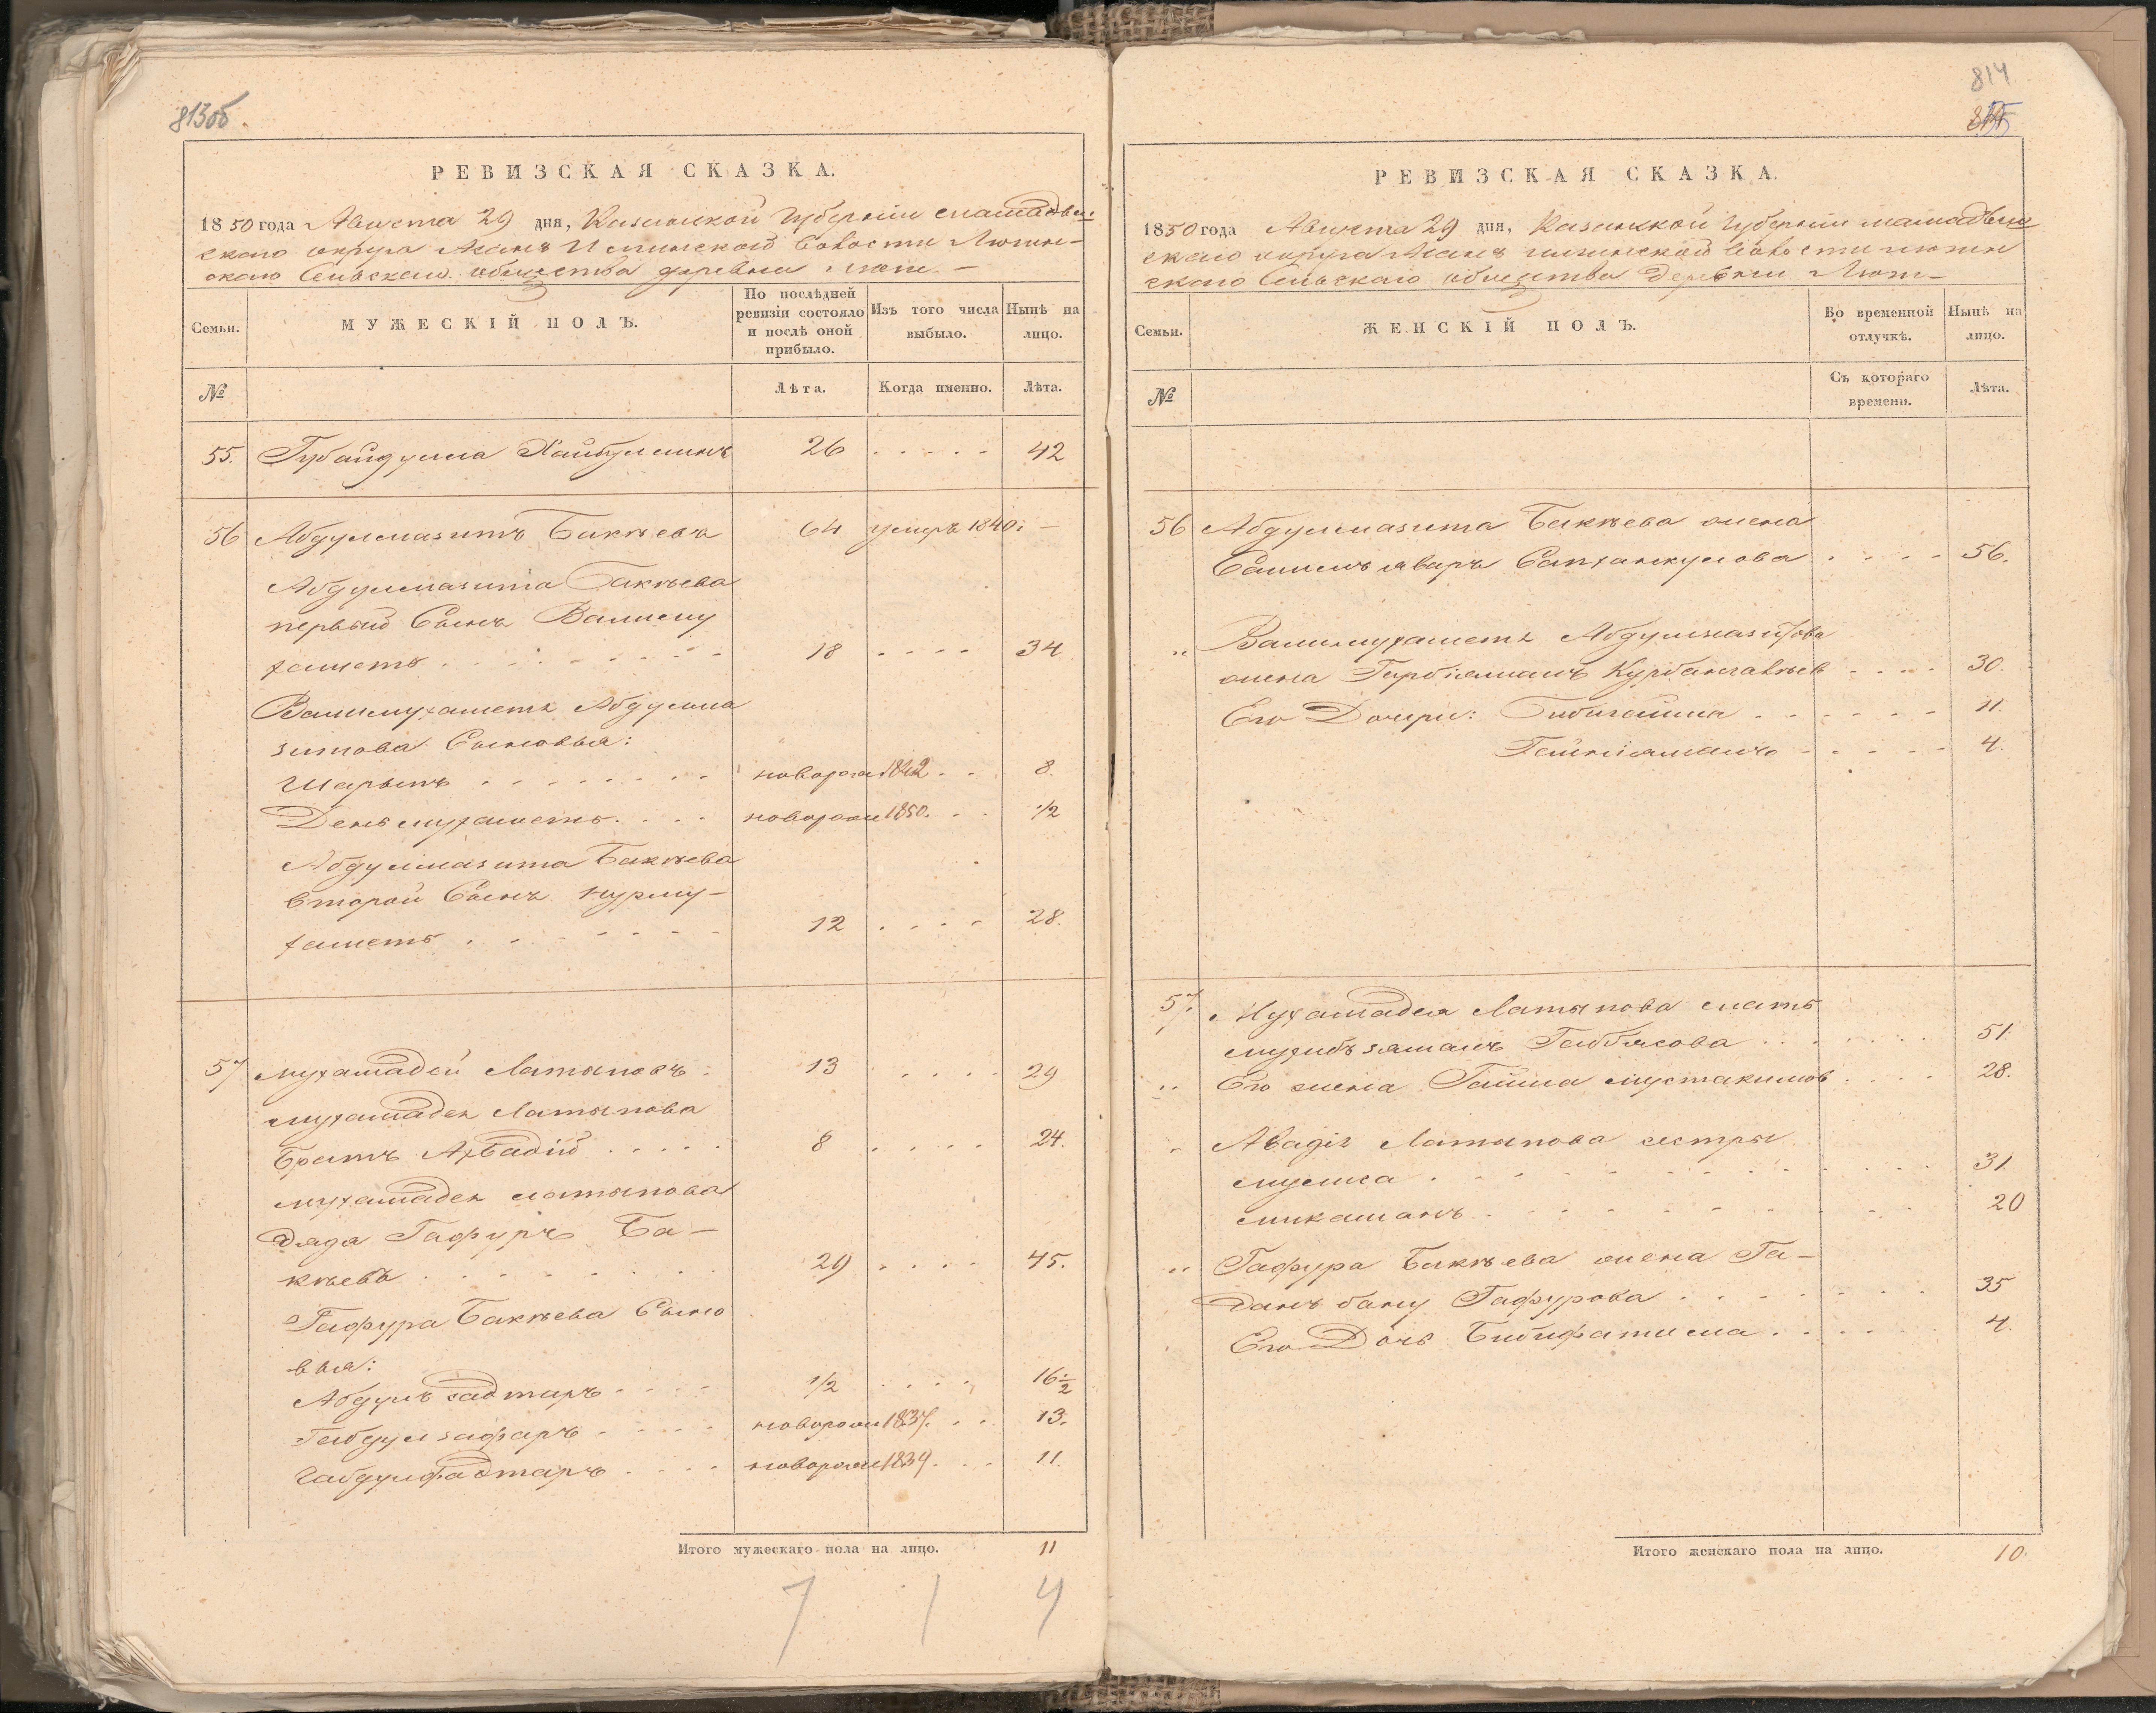 813об.
РЕВИЗСКАЯ СКАЗКА.
1850 года Августа 29 дня, Казанской Губернии мамадыш
скаго округа Асанъ Илинской Волости Лютин-
скаго Сельскаго общества деревни Люти-
Семьи.
МУЖЕСКІЙ ПОЛЪ.
По послѣдней ревизіи состояло и послѣ оной прибыло.
Изъ того числа выбыло.
Нынѣ на лицо.
№
Лѣта.
Когда именно.
Лѣта.
55. Губайдулла Хайбуллинъ 26 . . . . . 42
56 Абдулмазитъ Бакѣевъ 64 умеръ 1840: —
Абдулмазита Бакѣева
первый Сынъ Валиму
хаметъ . . . 18 . . . . 34
Валимухамета Абдулма
зитова Сыновья:
Шарыпъ . . . новорож 1842 . . 8.
Деньмухаметъ. . . . новорож 1850. . . 1/2
Абдулмазита Бакѣева
второй Сынъ Нурму-
хаметъ . . . 12 . . . . 28.
57 Мухамадей Латыповъ. 13 . . . . 29
Мухамадея Латыпова
братъ Ахвадій . . . . 8 . . . . 24.
Мухамадея Латыпова
дядя Гафуръ Ба-
кѣевъ . . . 29 . . . . 45.
Гафура Бакѣева Сыно
вья:
Абдулъ саттаръ . . . 1/2 . . . . 16 1/2
Габдулзафаръ . . . . новорож 1837. . . 13.
Габдулфаттаръ . . . . новорож 1839. . . 11.
Итого мужескаго пола на лицо. 11
7 1 4
814
РЕВИЗСКАЯ СКАЗКА.
1850 года Августа 29 дня, Казанской Губернии мамадыш
скаго округа Асанъ илинской Волости лютин
скаго Сельскаго общества Деревни Люти-
Семьи.
ЖЕНСКІЙ ПОЛЪ.
Во временной отлучкѣ.
Нынѣ на лицо.
№
Съ котораго времени.
Лѣта.
56 Абдулмазита Бакѣева жена
. . . . 56.
„ Валимухамета Абдулмазитова
жена Курбангалѣев . . . . 30.
Его Дочери: Бибигайша . . . . . . 11.
. . . . . 4.
57. Мухамадея Латыпова мать
. . . . . . 51.
„ Его жена Гайша мустакимов . . . . 28.
„ Латыпова сестры
. . . 31.
. . . 20
„ Гафура Бакѣева жена Га-
Гафурова . . . . . . . 35
Его Дочь Бибифатима . . . . . 4.
Итого женскаго пола на лицо. 10.